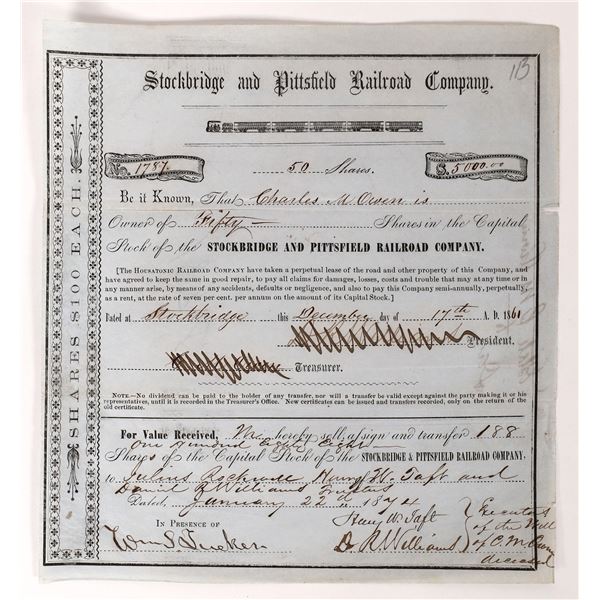 113
Stockbridge and Pittsfield Railroad Company.
No. 1787
50 Shares.
$ 5000.00
Be it Known, That Charles M. Owen is
Owner of Fifty Shares in the Capital
Stock of the STOCKBRIDGE AND PITTSFIELD RAILROAD COMPANY.
[The Housatonic Railroad Company have taken a perpetual lease of the road and other property of this Company, and
have agreed to keep the same in good repair, to pay all claims for damages, losses, costs and trouble that may at any time or in
any manner arise, by means of any accidents, defaults or negligence, and also to pay this Company semi-annually, perpetually,
as a rent, at the rate of seven per cent. per annum on the amount of its Capital Stock.]
Dated at Stockbridge this December day of 17th A. D. 1861
President.
Treasurer.
Note.—No dividend can be paid to the holder of any transfer, nor will a transfer be valid except against the party making it or his
representatives, until it is recorded in the Treasurer's Office. New certificates can be issued and transfers recorded, only on the return of the
old certificate.
For Value Received, We hereby sell, assign and transfer 188
one hundred eighty eight
Shares of the Capital Stock of the STOCKBRIDGE & PITTSFIELD RAILROAD COMPANY.
to Julius Rockwell Henry W. Taft and
Daniel R Williams Trustees
Dated, January 22 1874
In Presence of
Wm S. Tucker
Henry W. Taft
D. R. Williams
Executors
of the Will
of C. M. Owen
deceased
SHARES $100 EACH.